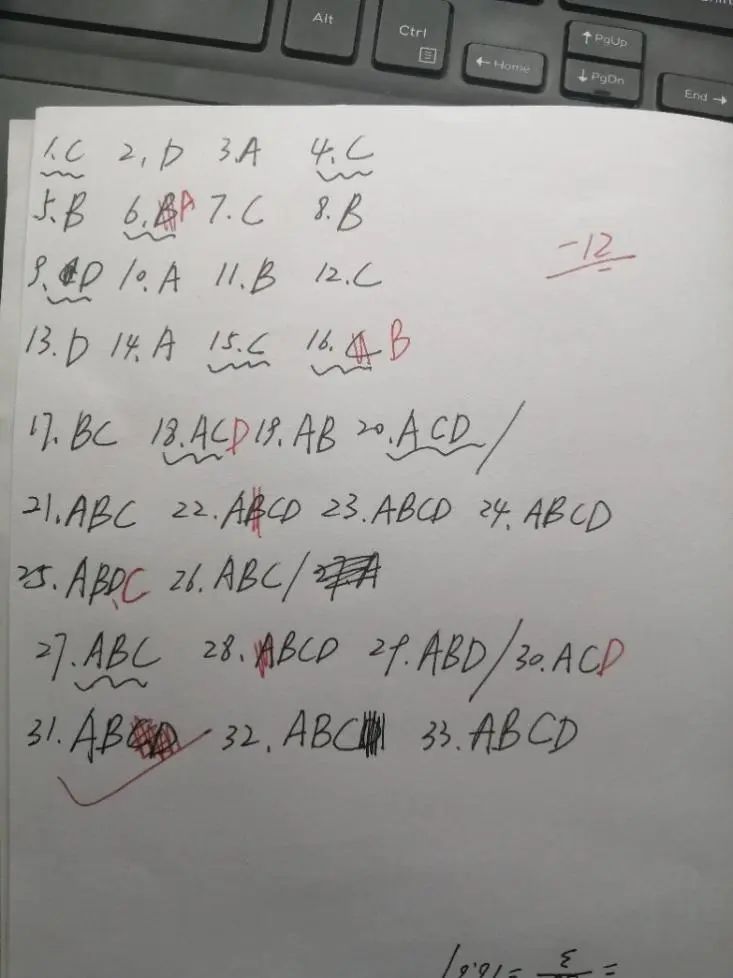 Alt Ctrl ← Home ↑ PgUp ↓ PgDn End →
1.C 2.D 3.A 4.C
5.B 6.A 7.C 8.B
-12
9.D 10.A 11.B 12.C
13.D 14.A 15.C 16.B
17.BC 18.ACD 19.AB 20.ACD/
21.ABC 22.ABCD 23.ABCD 24.ABCD
25.ABDC 26.ABC/
27.ABC 28.ABCD 29.ABD/30.ACD
31.AB 32.ABC 33.ABCD